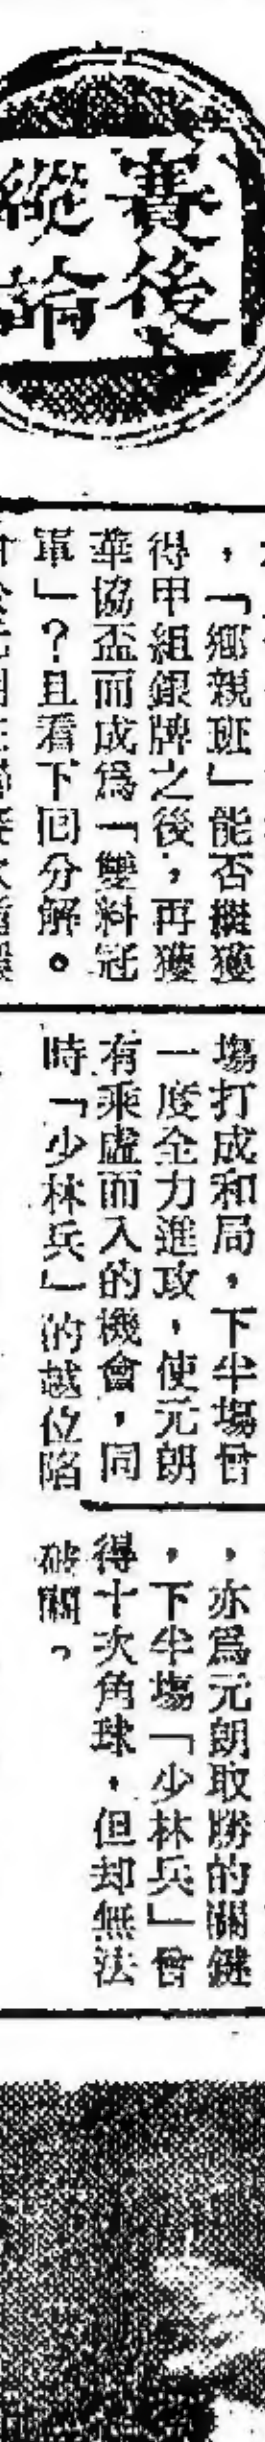 賽後
縱論
，「鄉親班」能否繼獲
得甲組銀牌之後，再獲
華協盃而成爲「雙料冠
軍」？且看下回分解。
場打成和局，下半場曾
一度全力進攻，使元朗
有乘虛而入的機會，同
時「少林兵」的越位陷
，亦爲元朗取勝的關鍵
，下半場「少林兵」曾
得十次角球，但却無法
破關。